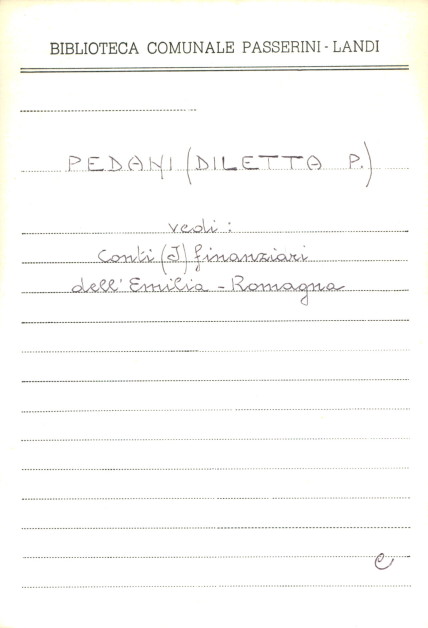 BIBLIOTECA COMUNALE PASSERINI - LANDI
PEDANI (DILETTA P.)
vedi :
Conti (I) finanziari
dell'Emilia - Romagna
e